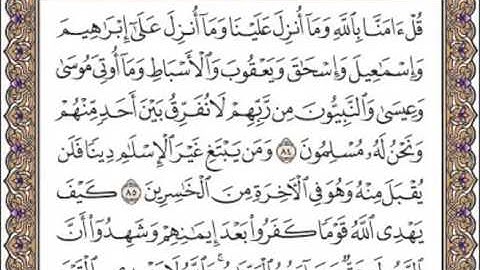 قُلۡ ءَامَنَّا بِٱللَّهِ وَمَآ أُنزِلَ عَلَيۡنَا وَمَآ أُنزِلَ عَلَىٰٓ إِبۡرَٰهِيمَ
وَإِسۡمَٰعِيلَ وَإِسۡحَٰقَ وَيَعۡقُوبَ وَٱلۡأَسۡبَاطِ وَمَآ أُوتِيَ مُوسَىٰ
وَعِيسَىٰ وَٱلنَّبِيُّونَ مِن رَّبِّهِمۡ لَا نُفَرِّقُ بَيۡنَ أَحَدٖ مِّنۡهُمۡ
وَنَحۡنُ لَهُۥ مُسۡلِمُونَ ٨٤ وَمَن يَبۡتَغِ غَيۡرَ ٱلۡإِسۡلَٰمِ دِينٗا فَلَن
يُقۡبَلَ مِنۡهُ وَهُوَ فِي ٱلۡأٓخِرَةِ مِنَ ٱلۡخَٰسِرِينَ ٨٥ كَيۡفَ
يَهۡدِي ٱللَّهُ قَوۡمٗا كَفَرُواْ بَعۡدَ إِيمَٰنِهِمۡ وَشَهِدُوٓاْ أَنَّ